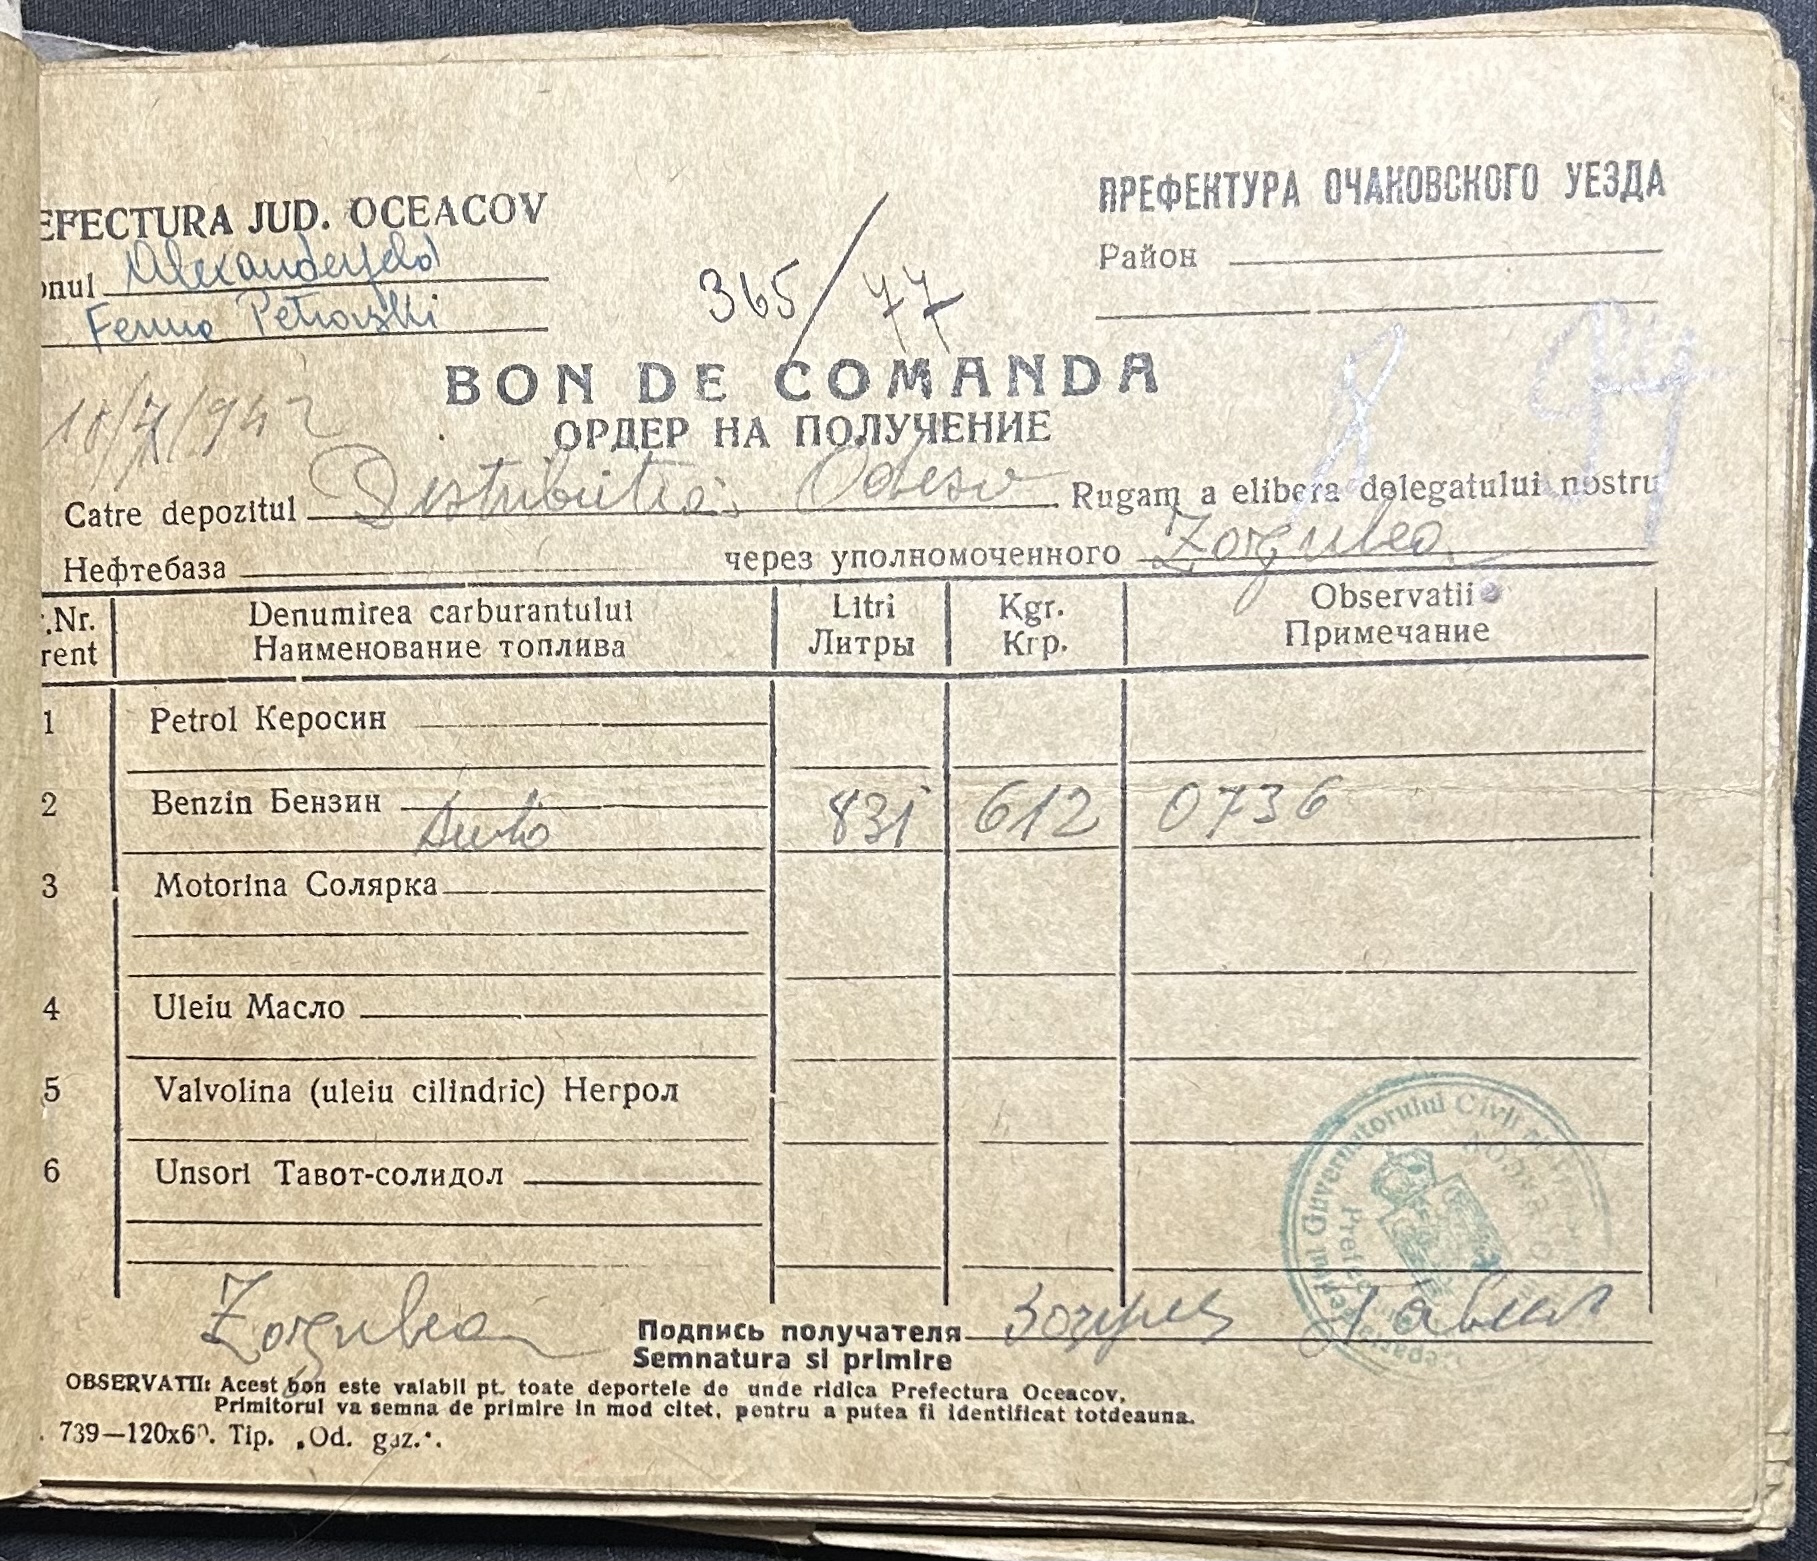 EFECTURA JUD. OCEACOV
ПРЕФЕКТУРА ОЧАКОВСКОГО УЕЗДА
onul Alexanderfeld
Район
Ferma Petrovski
365/77
BON DE COMANDA
10/7/942
ОРДЕР НА ПОЛУЧЕНИЕ
Catre depozitul Distributia Odesa Rugam a elibera delegatului nostru
Нефтебаза через уполномоченного Zorgulea
.Nr. Denumirea carburantului Litri Kgr. Observatii
rent Наименование топлива Литры Кгр. Примечание
1 Petrol Керосин
2 Benzin Бензин Auto 831 612 0736
3 Motorina Солярка
4 Uleiu Масло
5 Valvolina (uleiu cilindric) Негрол
6 Unsori Тавот-солидол
Guvernatorului Civil
Zorgulea Подпись получателя
Semnatura si primire
OBSERVATII: Acest bon este valabil pt. toate deportele de unde ridica Prefectura Oceacov,
Primitorul va semna de primire in mod citet, pentru a putea fi identificat totdeauna.
. 739—120x60. Tip. „Od. gaz.“.